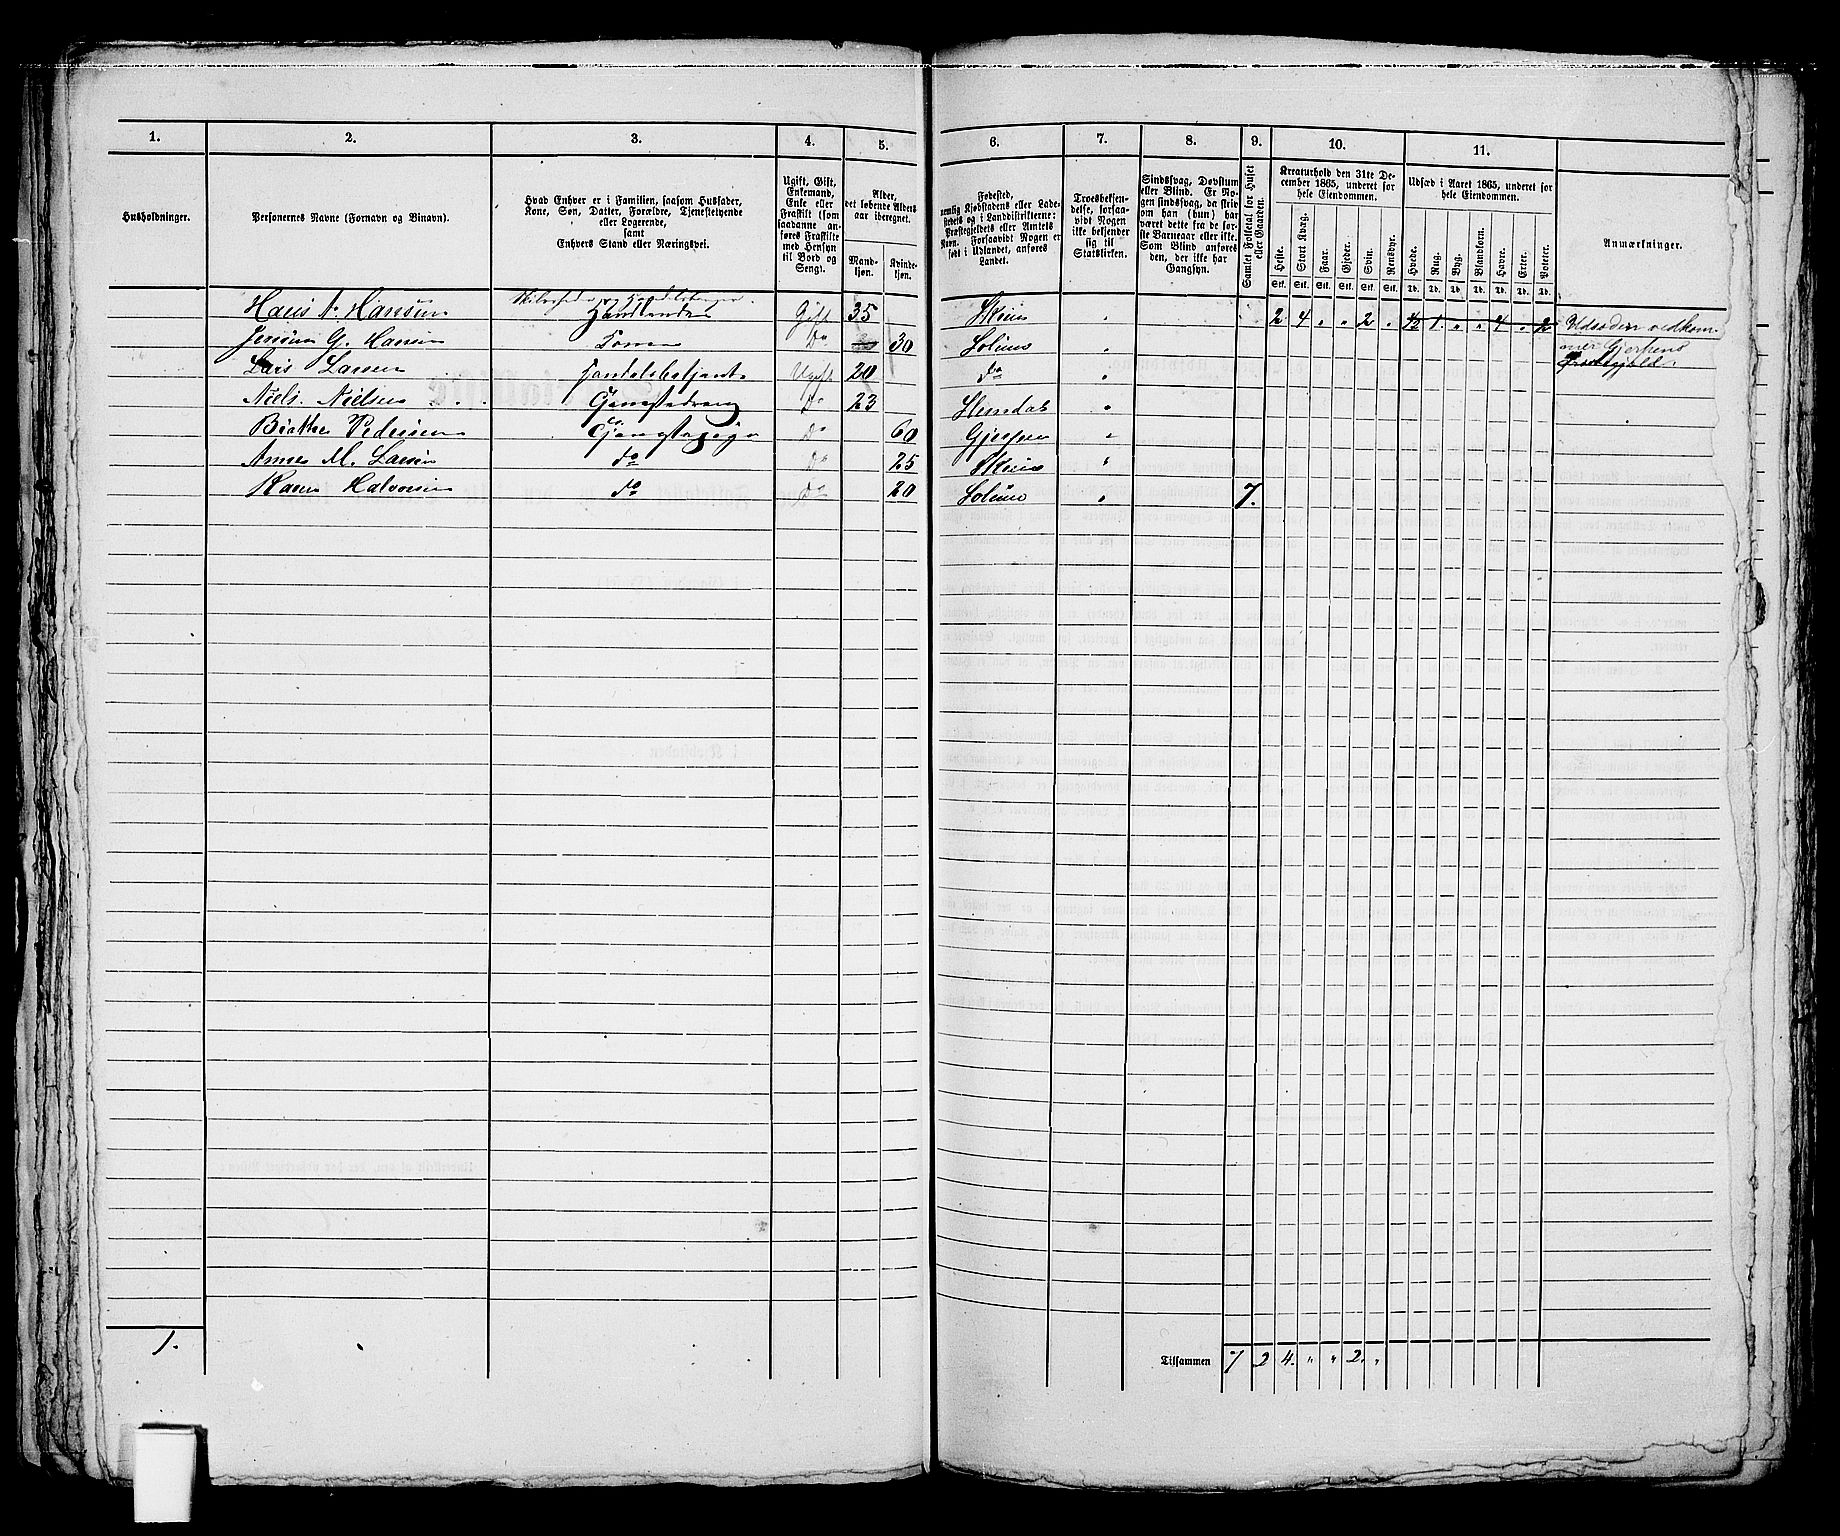 1. 2. 3. 4. 5. 6. 7. 8. 9. 10. 11.
Husholdninger.
Personernes Navne (Fornavn og Binavn).
Hvad Enhver er i Familien, saasom Husfader,
Kone, Søn, Datter, Forældre, Tjenestetyende
eller Logerende,
samt
Enhvers Stand eller Næringsvei.
Ugift, Gift,
Enkemand,
Enke eller
Fraskilt (som
saadanne an-
føres Fraskilte
med Hensyn
til Bord og
Seng).
Alder,
det løbende Alders-
aar iberegnet.
Mand-
kjøn.
Kvinde-
kjøn.
Fødested,
nemlig Kjøbstadens eller Lade-
stedets og i Landdistrikterne:
Præstegjeldets eller Amtets
Navn. Forsaavidt Nogen er
født i Udlandet, anføres
Landet.
Troesbekjen-
delse, forsaa-
vidt Nogen
ikke bekjender
sig til
Statskirken.
Sindssvag, Døvstum
eller Blind. Er No-
gen sindssvag, da skriv
om han (hun) har
været dette fra de før-
ste Barneaar eller ikke.
Som Blind anføres
den, der ikke har
Gangsyn.
Samlet Folketal for Huset
eller Gaarden.
Kreaturhold den 31te De-
cember 1865, underet for
hele Eiendommen.
Heste. Stort Kvæg. Faar. Gjeder. Svin. Rensdyr.
Stk. Stk. Stk. Stk. Stk. Stk.
Udsæd i Aaret 1865, underet for
hele Eiendommen.
Hvede. Rug. Byg. Blandkorn. Havre. Erter. Poteter.
Td. Td. Td. Td. Td. Td. Td.
Anmærkninger.
Hans N. Hansen Handlende Gift 35 Skien " 2 4 " " 2 " ½ 1 " " 4 " 2 Udsæden vedkom-
G. Hansen Do 30 Solum " mer Gjerpens
Lars Larsen Handelsbetjent Ugift 20 do " Præstegjeld.
Niels Nielsen Do 23 "
Pedersen Do 60 Gjerpen "
Anne M. Larsen do Do 25 Skien "
Karen Halvorsen do Do 20 Solum " 7.
1.
Tilsammen 7 2 4 " " 2 "